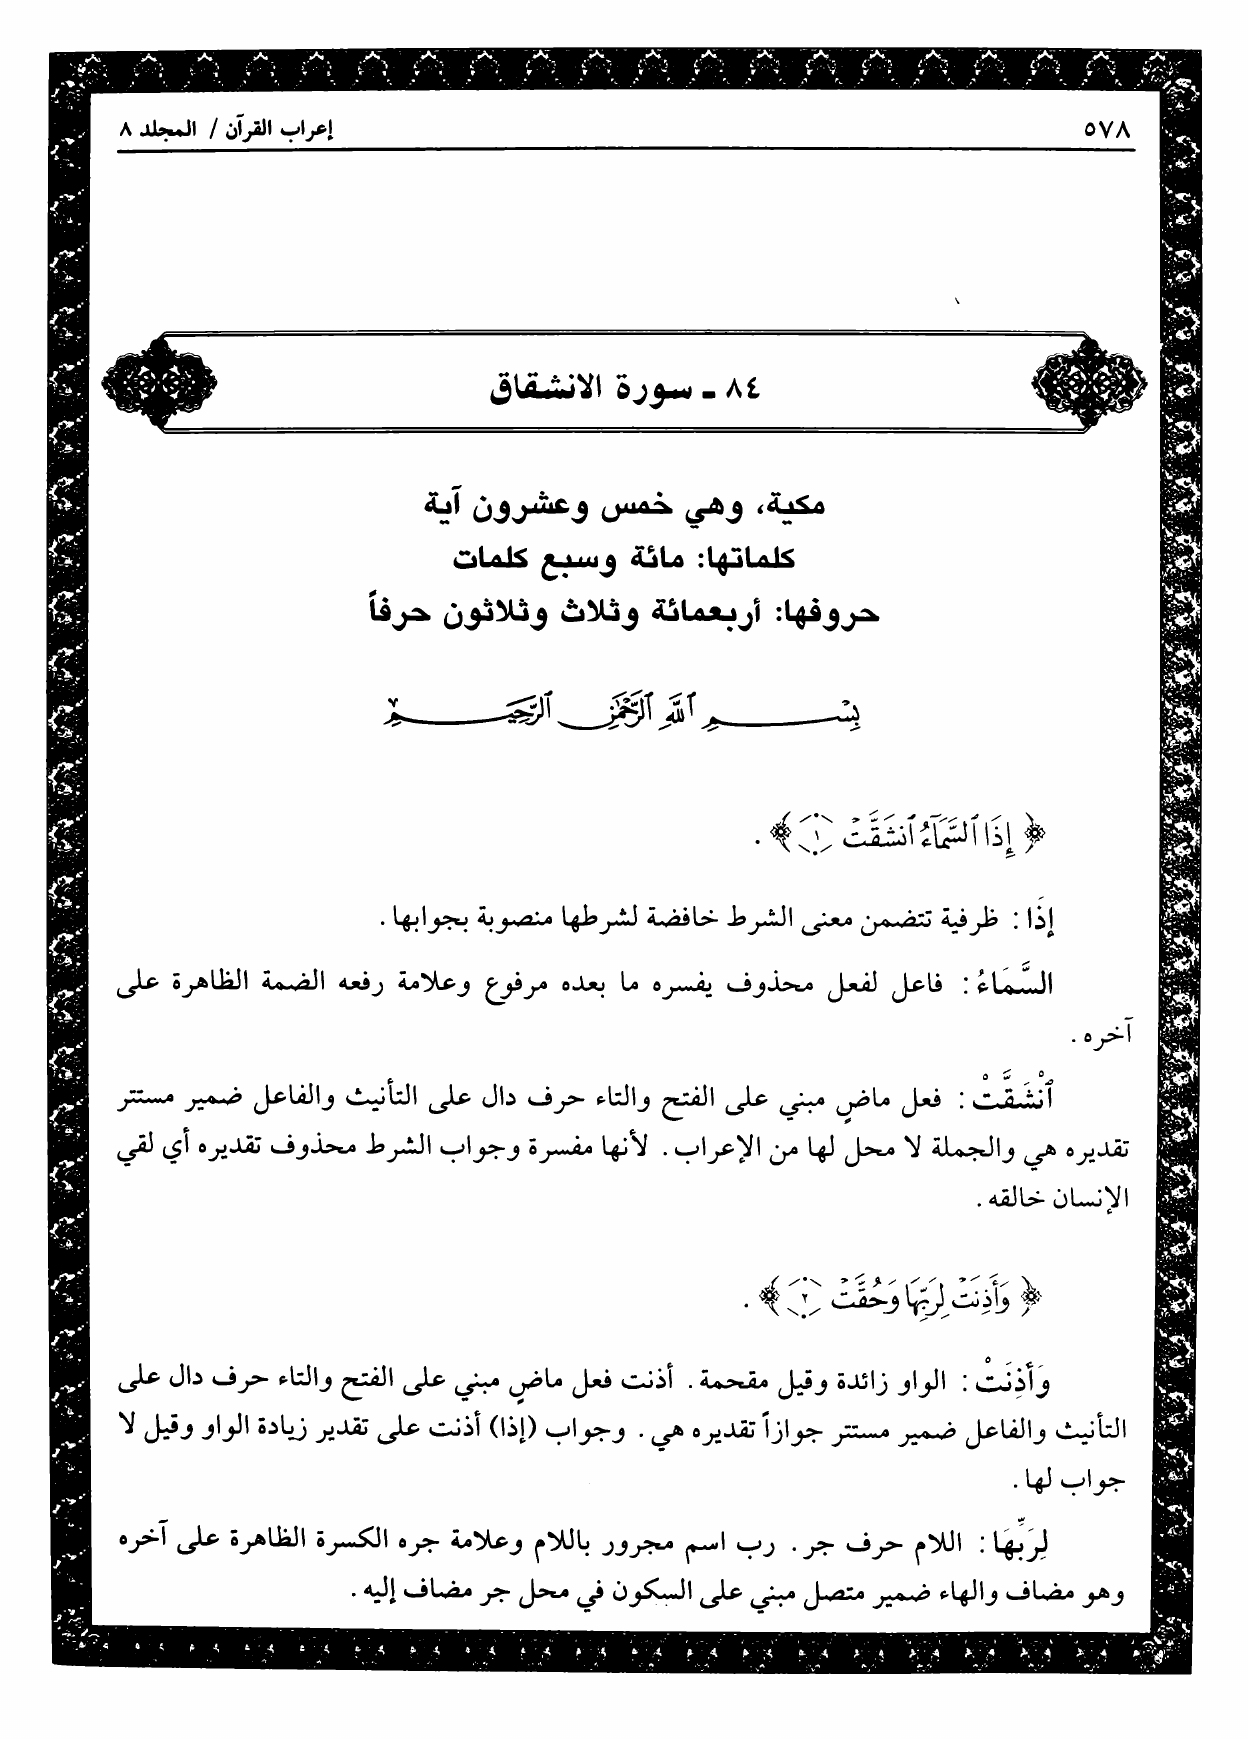 ٥٧٨
إعراب القرآن / المجلد ٨
٨٤ ـ سورة الانشقاق
مكية، وهي خمس وعشرون آية
كلماتها: مائة وسبع كلمات
حروفها: أربعمائة وثلاث وثلاثون حرفاً
بِسْمِ ٱللَّهِ ٱلرَّحْمَٰنِ ٱلرَّحِيمِ
﴿ إِذَا ٱلسَّمَآءُ ٱنشَقَّتْ ١ ﴾ .
إذَا : ظرفية تتضمن معنى الشرط خافضة لشرطها منصوبة بجوابها .
السَّمَاءُ : فاعل لفعل محذوف يفسره ما بعده مرفوع وعلامة رفعه الضمة الظاهرة على
آخره .
ٱنْشَقَّتْ : فعل ماضٍ مبني على الفتح والتاء حرف دال على التأنيث والفاعل ضمير مستتر
تقديره هي والجملة لا محل لها من الإعراب . لأنها مفسرة وجواب الشرط محذوف تقديره أي لقي
الإنسان خالقه .
﴿ وَأَذِنَتْ لِرَبِّهَا وَحُقَّتْ ٢ ﴾ .
وَأَذِنَتْ : الواو زائدة وقيل مقحمة . أذنت فعل ماضٍ مبني على الفتح والتاء حرف دال على
التأنيث والفاعل ضمير مستتر جوازاً تقديره هي . وجواب (إذا) أذنت على تقدير زيادة الواو وقيل لا
جواب لها .
لِرَبِّهَا : اللام حرف جر . رب اسم مجرور باللام وعلامة جره الكسرة الظاهرة على آخره
وهو مضاف والهاء ضمير متصل مبني على السكون في محل جر مضاف إليه .